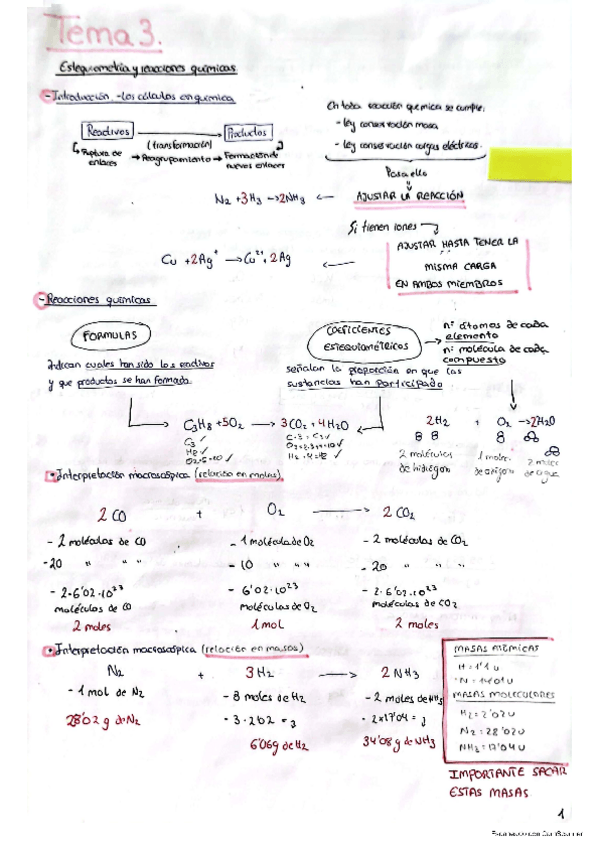 Tema 3.
Estequiometría y reacciones químicas
- Introducción. - los cálculos en química
Reactivos → Productos
(transformación)
Ruptura de enlaces → Reagrupamiento → Formación de nuevos enlaces
En toda reacción química se cumple:
- ley conservación masa
- ley conservación cargas eléctricas.
Para ello
AJUSTAR LA REACCIÓN
N2 + 3H3 → 2NH3
Si tienen iones
AJUSTAR HASTA TENER LA
MISMA CARGA
EN AMBOS MIEMBROS
Cu + 2Ag+ → Cu2+ + 2Ag
- Reacciones químicas
FORMULAS
Indican cuales han sido los reactivos
y que productos se han formado.
COEFICIENTES
ESTEQUIOMÉTRICOS
nº átomos de cada
elemento
nº molécula de cada
compuesto
señalan la proporción en que las
sustancias han participado
C3H8 + 5O2 → 3CO2 + 4H2O
C3 ✓
H8 ✓
O2·5=10 ✓
C·3=C3 ✓
H2·4=H8 ✓
2H2 + O2 → 2H2O
2 moléculas
de hidrógeno
1 moléc.
de oxígeno
2 moléc
de agua
• Interpretación macroscópica (relación en moles).
2 CO + O2 → 2 CO2
- 2 moléculas de CO - 1 molécula de O2 - 2 moléculas de CO2
- 20 " " " - 10 " " " - 20 " "
- 2·6'02·10^23 - 6'02·10^23 - 2·6'02·10^23
moléculas de CO moléculas de O2 moléculas de CO2
2 moles 1 mol 2 moles
• Interpretación macroscópica (relación en masas)
N2 + 3H2 → 2 NH3
- 1 mol de N2 - 3 moles de H2 - 2 moles de NH3
28'02 g de N2 - 3·2'02 = - 2×17'04 =
6'06g de H2 34'08 g de NH3
MASAS ATÓMICAS
H = 1'1 u
N = 14'01 u
MASAS MOLECULARES
H2 = 2'02 u
N2 = 28'02 u
NH3 = 17'04 u
IMPORTANTE SACAR
ESTAS MASAS
1
Escaneado con CamScanner